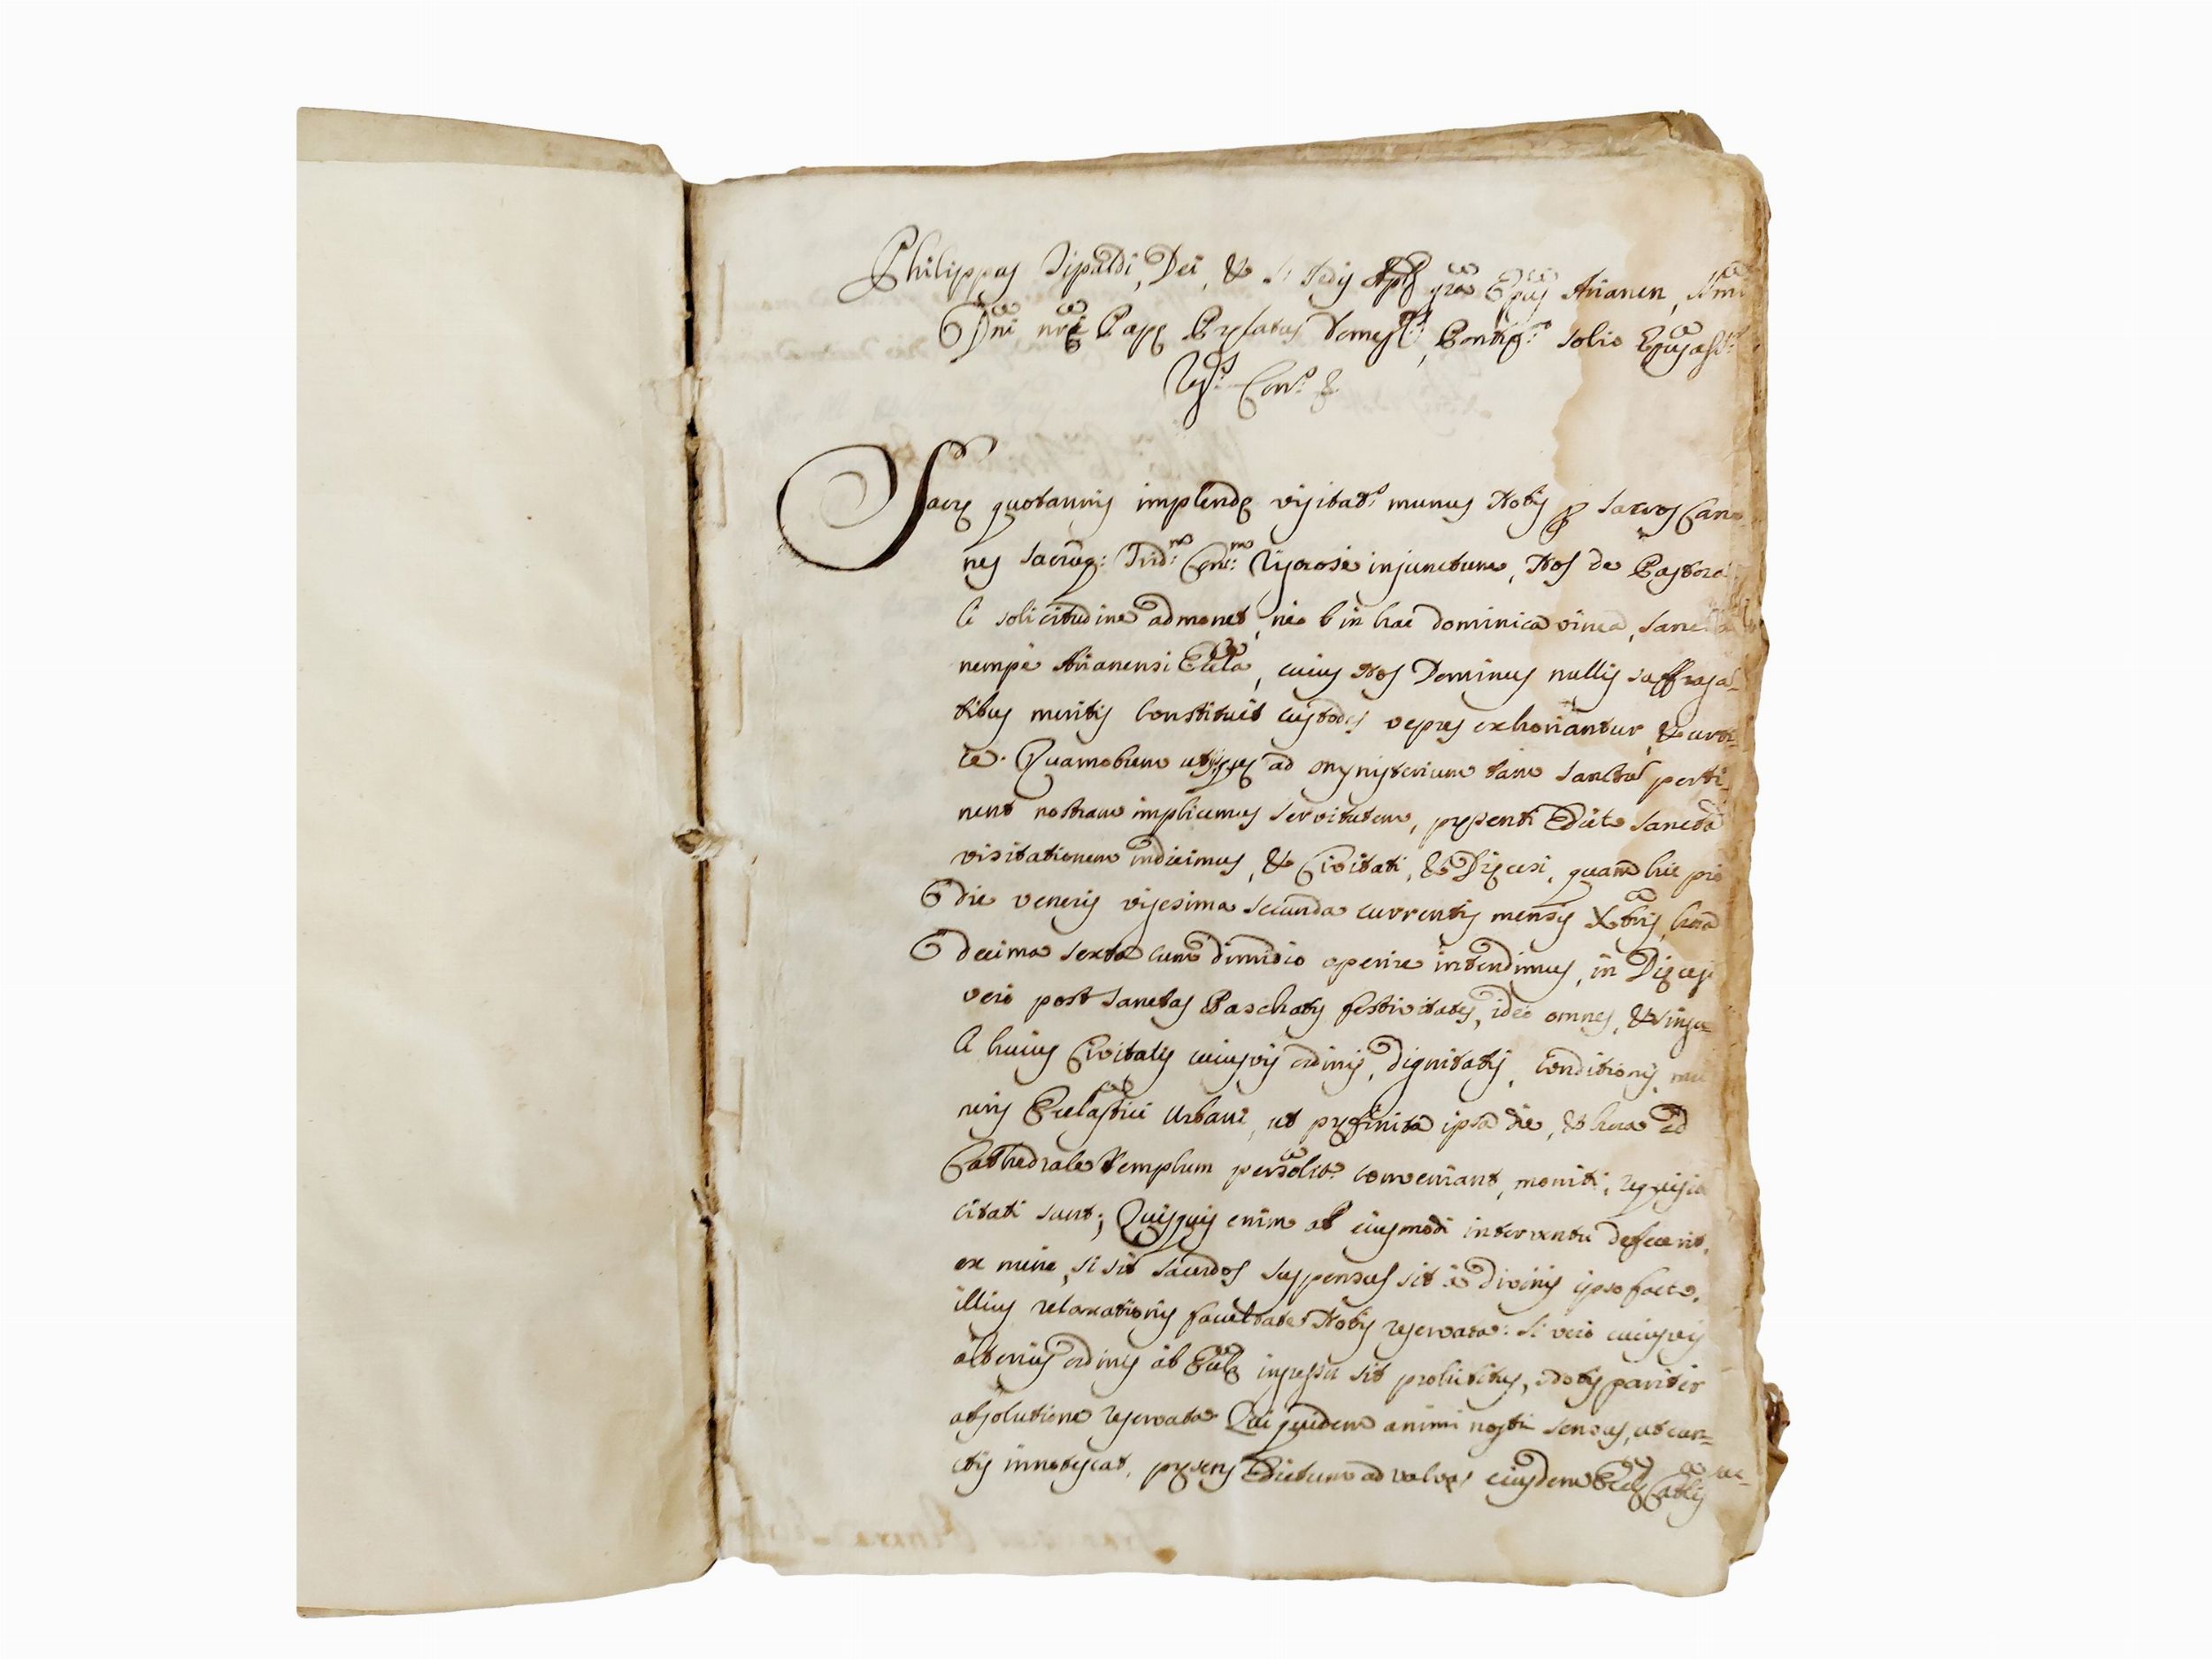 Philippus Tipaldi, Dei, & S. Sedis Aplicę gra Epus Arianen, Smi
Dni nri Papę Pręlatus Domest.s, Pontif.o solio Epus assis.s
Reg.s Con.s &
Sacrę quotannis implendę visitat.s munus Nobis per sacros Cano
nes sacrumq: Trid:num Conc:m rigorose injunctum, Nos de Pastora
li solicitudine admonet, ne in hac dominica vinea, sancta
nempè Arianensi Eccla, cuius Nos Dominus nullis suffraga-
tibus meritis constituit custodes vepres exhoriantur, & urti-
cę. Quamobrem utpote qui ad mynisterium tam sanctum perti-
nent nostram implicemus servitutem, pręsenti Edicto sanctam
visitationem indicimus, & Civitati, & Dięcesi, quam hic pro
die veneris vigesima secunda currentis mensis Xbris, hora
decima sexta cum dimidio aperire intendimus, in Dięcesi
verò post sanctas Paschatis festivitates, ideò omnes, & singu-
li huius Civitatis cuiusvis ordinis, dignitatis, conditionis, mu
neris Ecclastici Urbani, ut pręfinita ipsa die, & hora ad
Cathedrale templum personalit. conveniant, moniti, requisiti
citati sunt; Quisquis enim ab eiusmodi interventu defecerit,
ex nunc, si sit sacerdos suspensus sit à divinis ipso facto,
illius relaxationis facultate Nobis reservata: si verò cuiusvis
alterius ordinis ab Ecclę ingressu sit prohibitus, Nobis pariter
absolutione reservata. Qui quidem animi nostri sensus, ut cun-
ctis innotescat, pręsens Edictum ad valvas eiusdem Ecclę Catlis